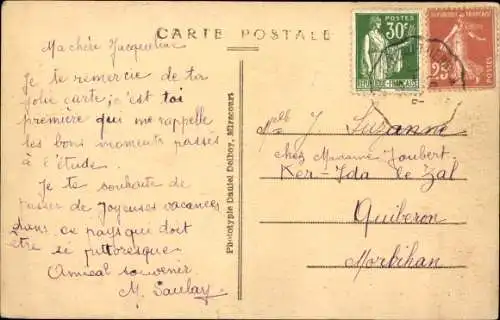 CARTE POSTALE
Ma chère Jacqueline
Je te remercie de ta
jolie carte, c'est toi
première qui me rappelle
les bons moments passés
à l'étude.
Je te souhaite de
passer de Joyeuses vacances
dans ce pays qui doit
être si pittoresque
Amical souvenir
M. Saulay
Phototypie Daniel Delboy, Mirecourt
POSTES
30c
REPUBLIQUE FRANÇAISE
REPUBLIQUE FRANÇAISE
25c
POSTES
Melle J. Suzanne
chez Madame Joubert
Ker-Ida le Zal
Quiberon
Morbihan